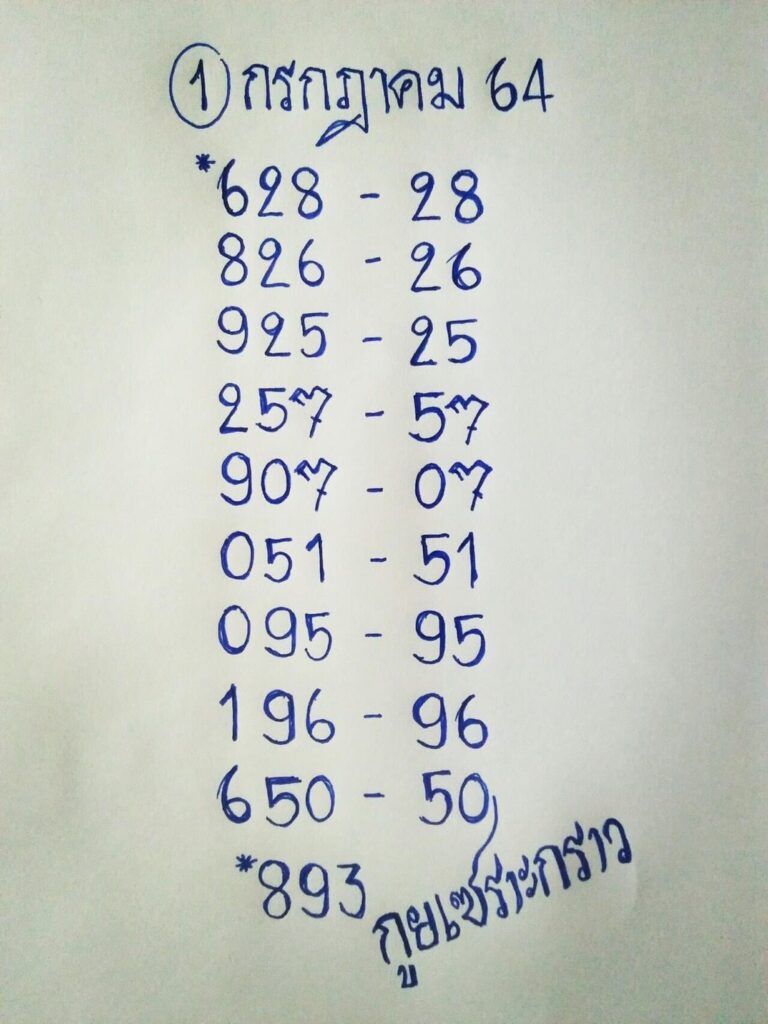 1 กรกฎาคม 64
*628 - 28
826 - 26
925 - 25
257 - 57
907 - 07
051 - 51
095 - 95
196 - 96
650 - 50
*893
กูยเซราะกราว